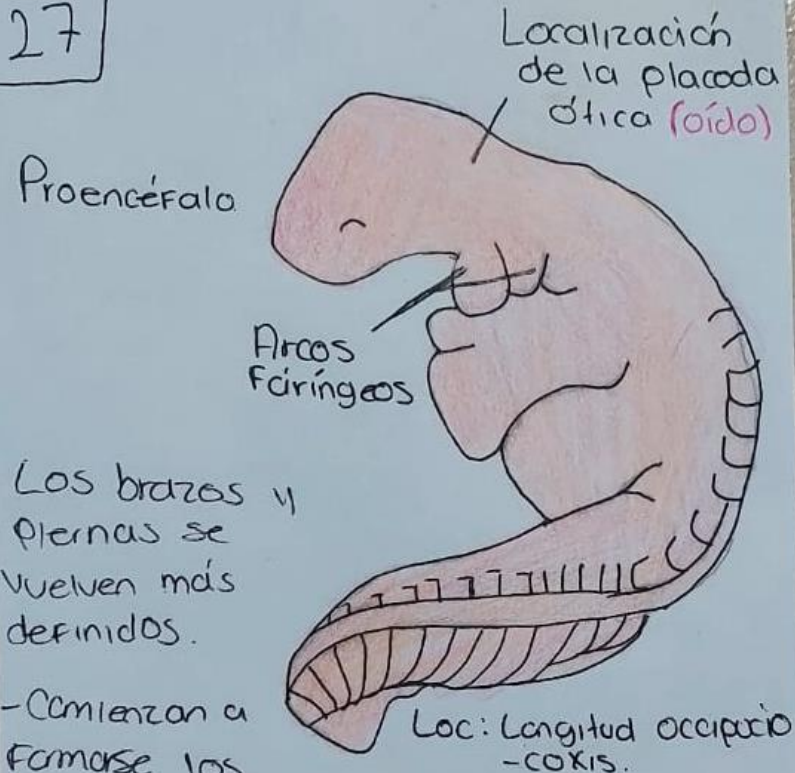 27
Localización
de la placoda
ótica (oído)
Proencéfalo
Arcos
Faríngeos
Los brazos y
piernas se
vuelven más
definidos.
-Comienzan a
formarse los
Loc: Longitud occipucio
-coxis.